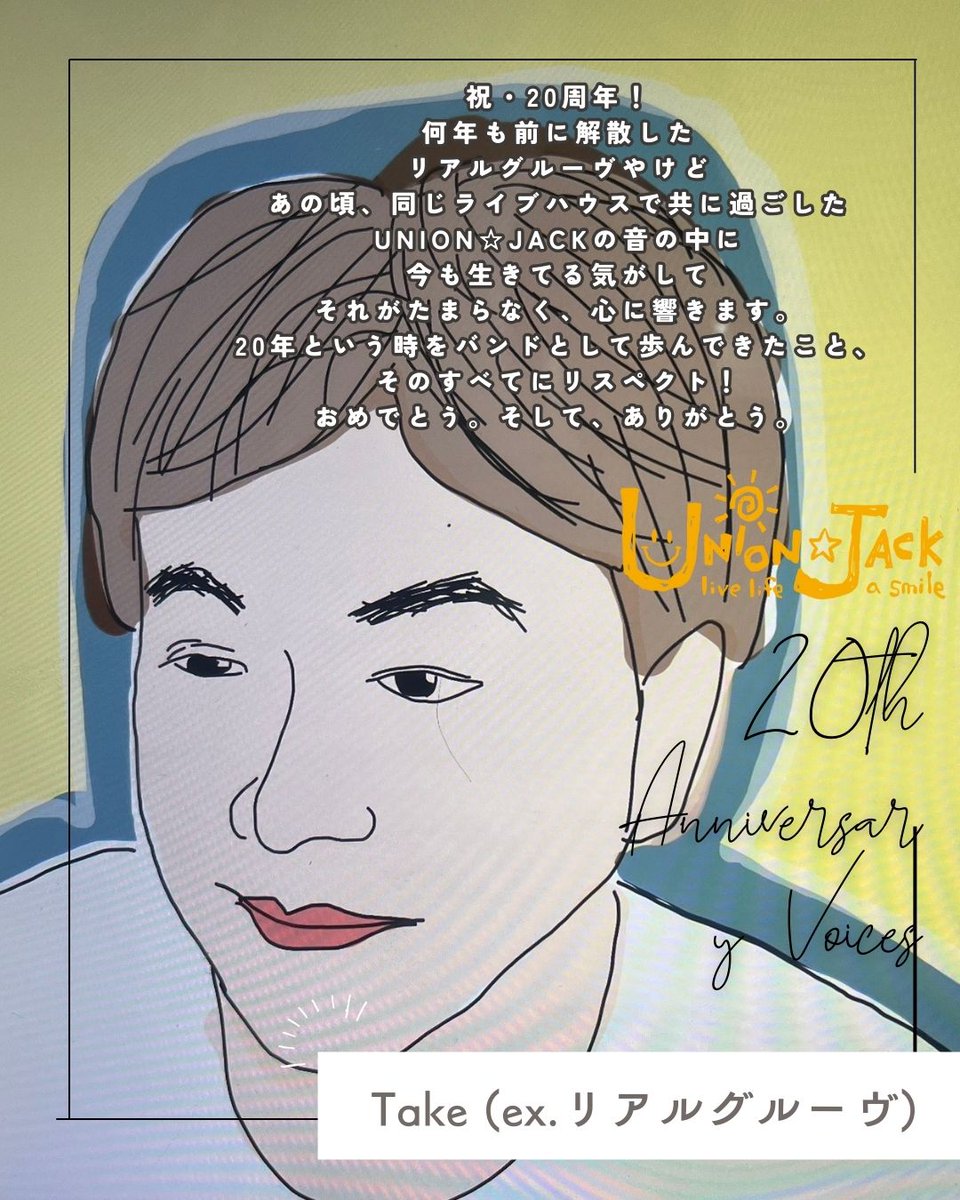 祝・20周年！
何年も前に解散した
リアルグルーヴやけど
あの頃、同じライブハウスで共に過ごした
UNION☆JACKの音の中に
今も生きてる気がして
それがたまらなく、心に響きます。
20年という時をバンドとして歩んできたこと、
そのすべてにリスペクト！
おめでとう。そして、ありがとう。
UNION☆JACK
live life a smile
20th
Anniversar
y Voices
Take (ex.リアルグルーヴ)